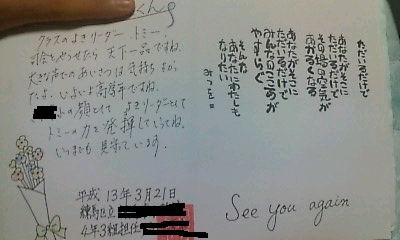 くんへ
クラスのよきリーダー トミー。
司会をやらせたら 天下一品ですね。
大きな声でのあいさつは 気持ちよかっ
たよ。いよいよ高学年ですね。
小の顔として よきリーダーとして
トミーの力を発揮していってね。
いつまでも 見守っています。
平成 13年3月21日
練馬区立
4年3組担任
ただいるだけで
あなたがそこに
ただいるだけで
その場の空気が
あかるくなる
あなたがそこに
ただいるだけで
みんなのこころが
やすらぐ
そんな
あなたにわたしも
なりたい
みつを
See you again